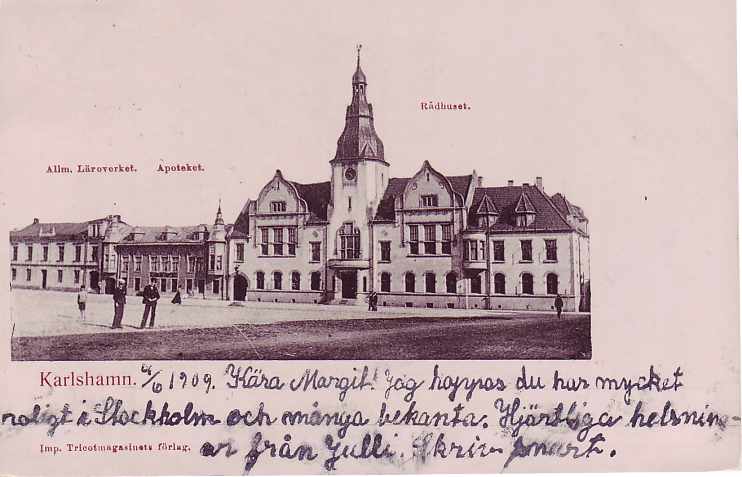 Rådhuset.
Allm. Läroverket. Apoteket.
Karlshamn. 4/6 1909. Kära Margit! Jag hoppas du har mycket
roligt i Stockholm och många bekanta. Hjärtliga helsnin-
ar från Julli. Skriv snart.
Imp. Tricotmagasinets förlag.